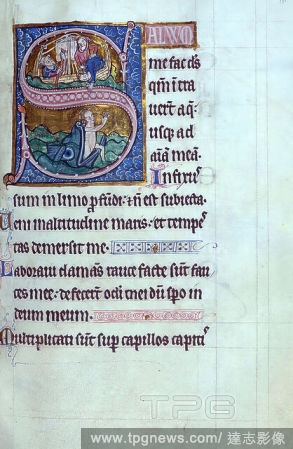 SALVUM
me fac ds
qm intra
verunt aq
usq; ad
aiam meā.
Infixus
sum in limo profūdi: ⁊ nō est substācia.
Veni in altitudinē maris: ⁊ tempes
tas demersit me.
Laboravi clamās rauce facte sūt fau
ces mee: defecerūt oculi mei dū spero in
deum meum.
Multiplicati sūt sup capillos capitis
TPG
www.tpgnews.com/ 達志影像